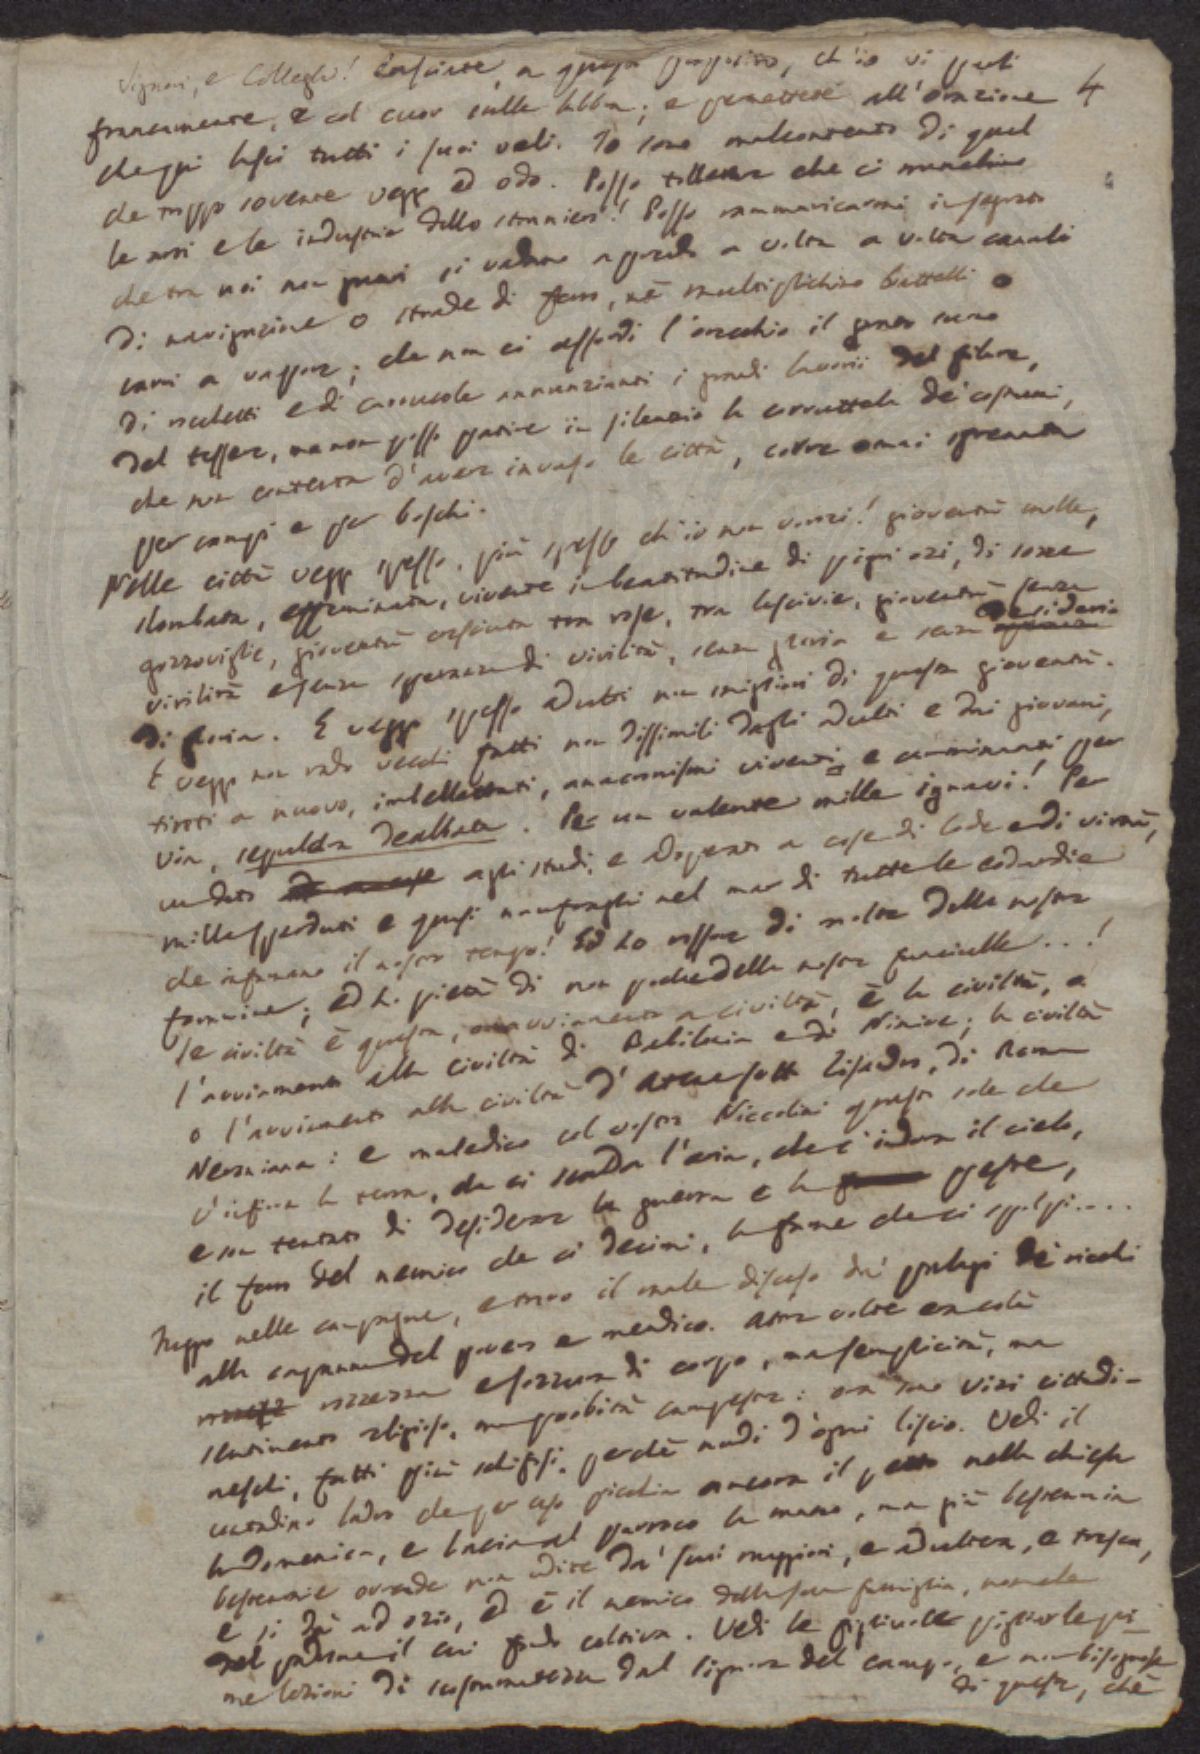 Signori, e Colleghi! Lasciate, a questo proposito, ch'io vi parli
4
francamente, e col cuor sulle labbra; e permettete all'orazione
che qui lasci tutti i suoi veli. Io sono malcontento di quel
che troppo sovente veggo ed odo. Posso tollerare che ci manchino
le arti e le industrie dello straniero! Posso rammaricarmi in segreto
che tra noi non guari si vadano aprendo a volta a volta canali
di navigazione o strade di ferro, nè moltiplichino battelli o
carri a vapore; che non ci assordi l'orecchio il grato suono
di rocchetti e di carrucole annunzianti i grandi lavorii del filare,
del tessere, ma non posso patire in silenzio la corruttela de' costumi,
che non contenta d'avere invaso le città, corre omai sfrenata
per campi e per boschi.
Nelle città veggo spesso, più spesso ch'io non vorrei! gioventù molle,
slombata, effeminata, vivente in beatitudine di pigri ozi, di sozze
gozzoviglie, gioventù cresciuta tra rose, tra lascivie, gioventù senza
virilità e senza speranza di virilità, senza gloria e senza desiderio
di gloria. E veggo spesso adulti non migliori di questa gioventù.
E veggo non rado vecchi fatti non dissimili dagli adulti e dai giovani,
tinti a nuovo, imbellettati, anacronismi viventi e camminanti per
via, sepulcra dealbata. Per un valente mille ignavi! Per
un dato agli studi, e disposto a cose di lode e di virtù,
mille perduti e quasi naufraghi nel mar di tutte le codardie
che infamano il nostro tempo! Ed ho rossore di molte delle nostre
femmine; ed ho pietà di non poche delle nostre fanciulle...!
Se civiltà è questa, o avviamento a civiltà, è la civiltà, o
l'avviamento alla civiltà di Babilonia e di Ninive; la civiltà
o l'avviamento alla civiltà d'Atene sotto Lisandro, di Roma
Neroniana: e maledico col vostro Niccolini questo sole che
c'infiora la terra, che ci scalda l'aria, che c'indora il cielo,
e son tentato di desiderare la guerra e la peste,
il ferro del nemico che ci decimi, la fame che ci spolpi....
Fuggo nelle campagne, e trovo il male disceso da' palagi de' ricchi
alla capanna del povero e mendico. Altre volte era colà
rozzezza e sozzura di corpo, ma semplicità, ma
sentimento religioso, ma probità campestre: ora sono vizi cittadi-
neschi, fatti più schifosi, perchè nudi d'ogni liscio. Vedi il
contadino ladro che per uso picchia ancora il petto nella chiesa
la domenica, e bacia al parroco la mano, ma già bestemmia
bestemmie orrende non udite da' suoi maggiori, e adultera, e tresca,
e si dà ad ozio, ed è il nemico della sua famiglia, nonchè
del padrone il cui fondo coltiva. Vedi le figliuole pigliar le pri-
me lezioni di scostumatezza dal signore del campo, e non bisognose
di queste, chè